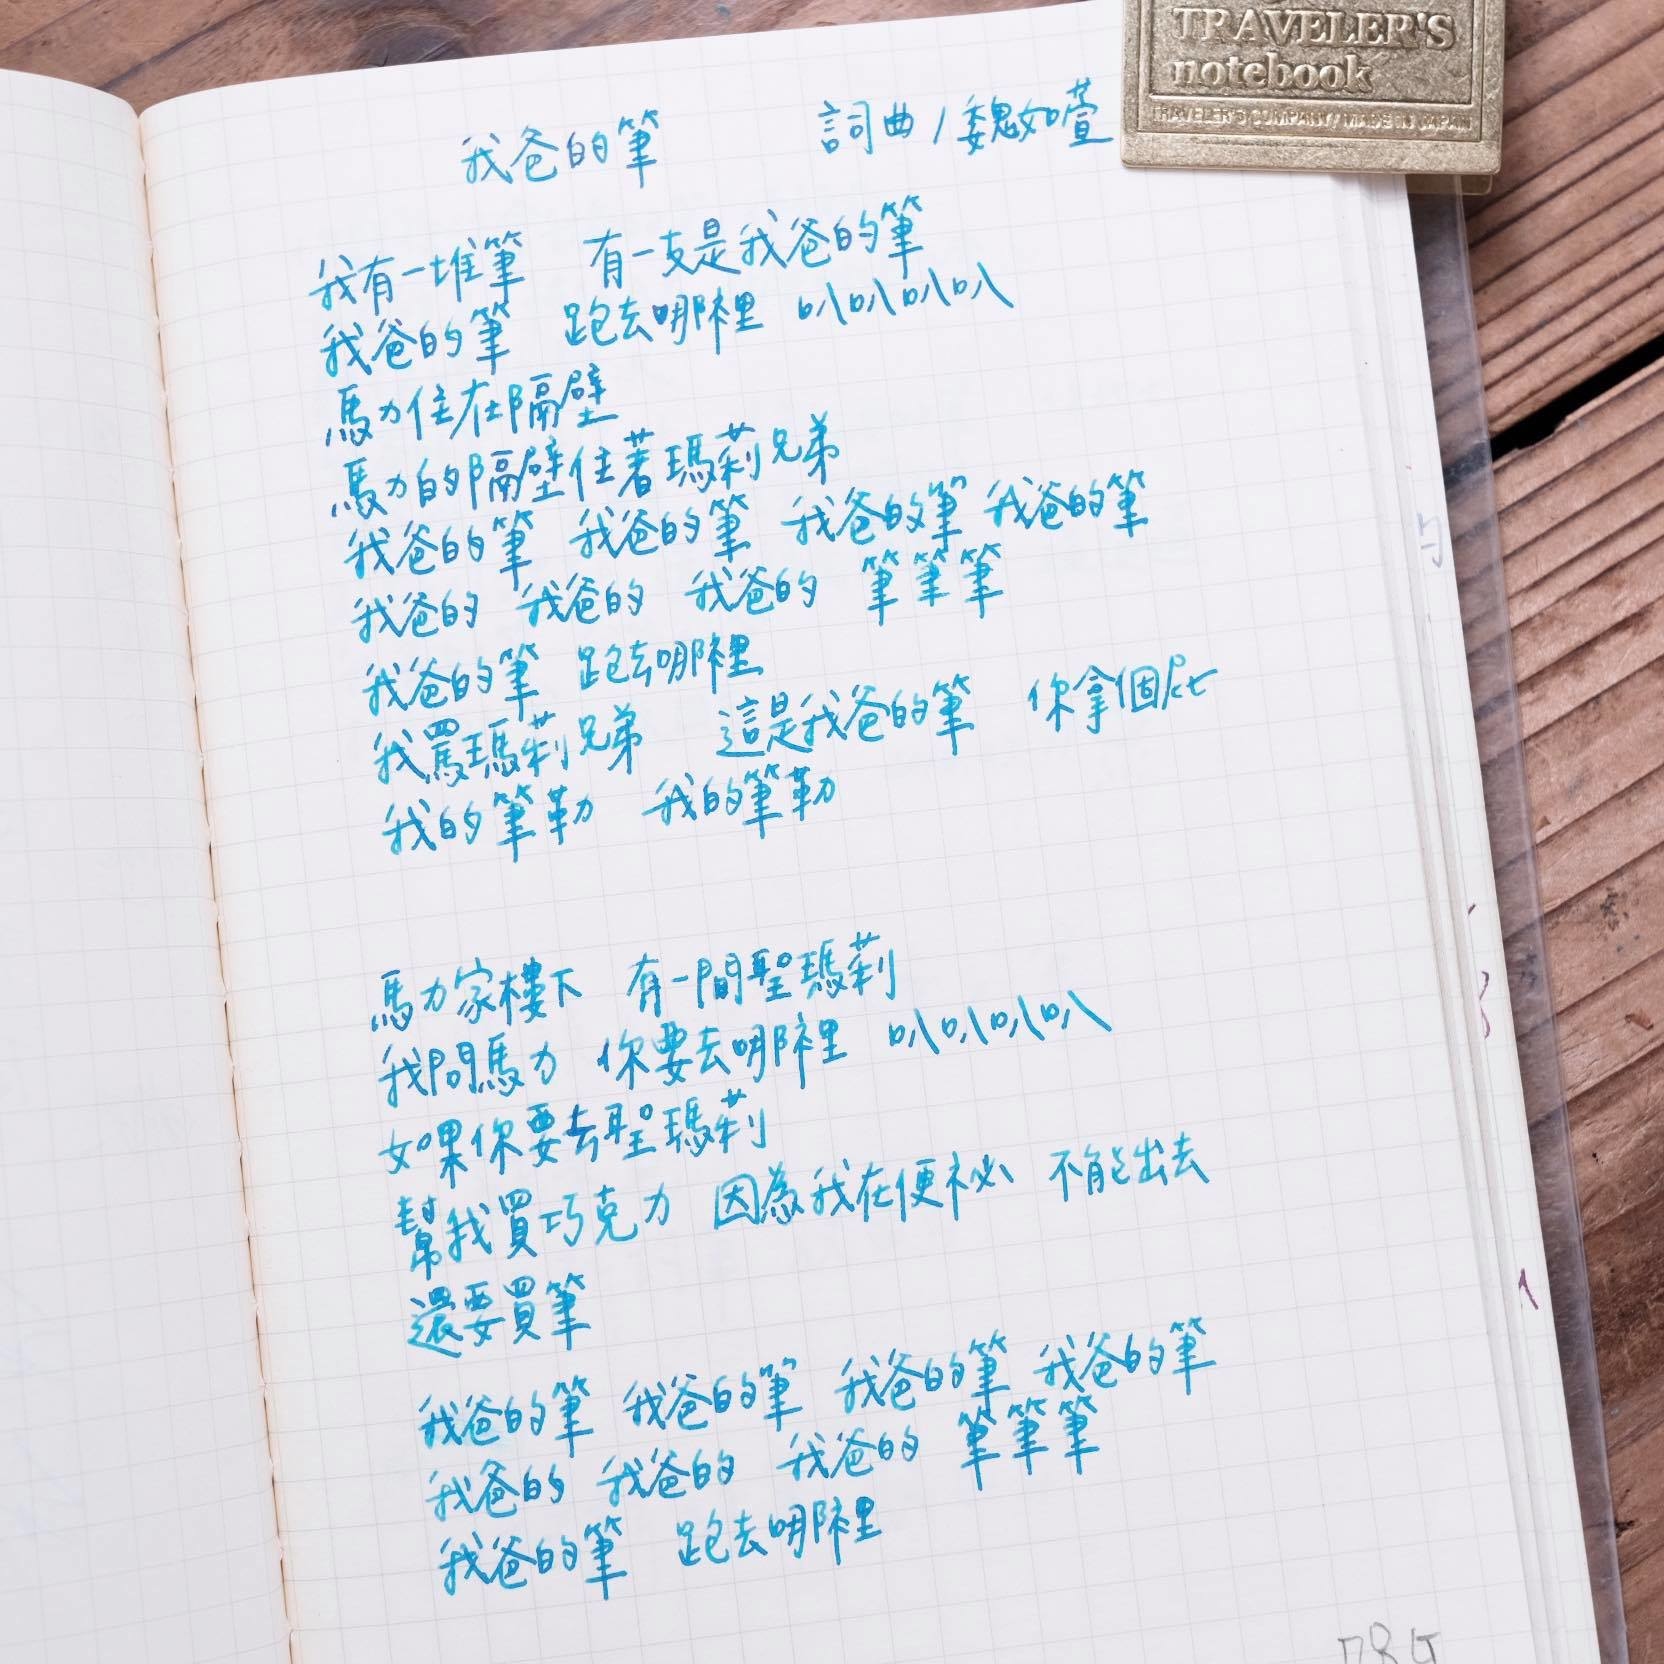 TRAVELER'S
notebook
TRAVELER'S COMPANY / MADE IN JAPAN
我爸的筆 詞曲/魏如萱
我有一堆筆 有一支是我爸的筆
我爸的筆 跑去哪裡 叭叭叭叭
馬力住在隔壁
馬力的隔壁住著瑪莉兄弟
我爸的筆 我爸的筆 我爸的筆 我爸的筆
我爸的 我爸的 我爸的 筆筆筆
我爸的筆 跑去哪裡
我罵瑪莉兄弟 這是我爸的筆 你拿個屁
我的筆勒 我的筆勒
馬力家樓下 有一間聖瑪莉
我問馬力 你要去哪裡 叭叭叭叭
如果你要去聖瑪莉
幫我買巧克力 因為我在便祕 不能出去
還要買筆
我爸的筆 我爸的筆 我爸的筆 我爸的筆
我爸的 我爸的 我爸的 筆筆筆
我爸的筆 跑去哪裡